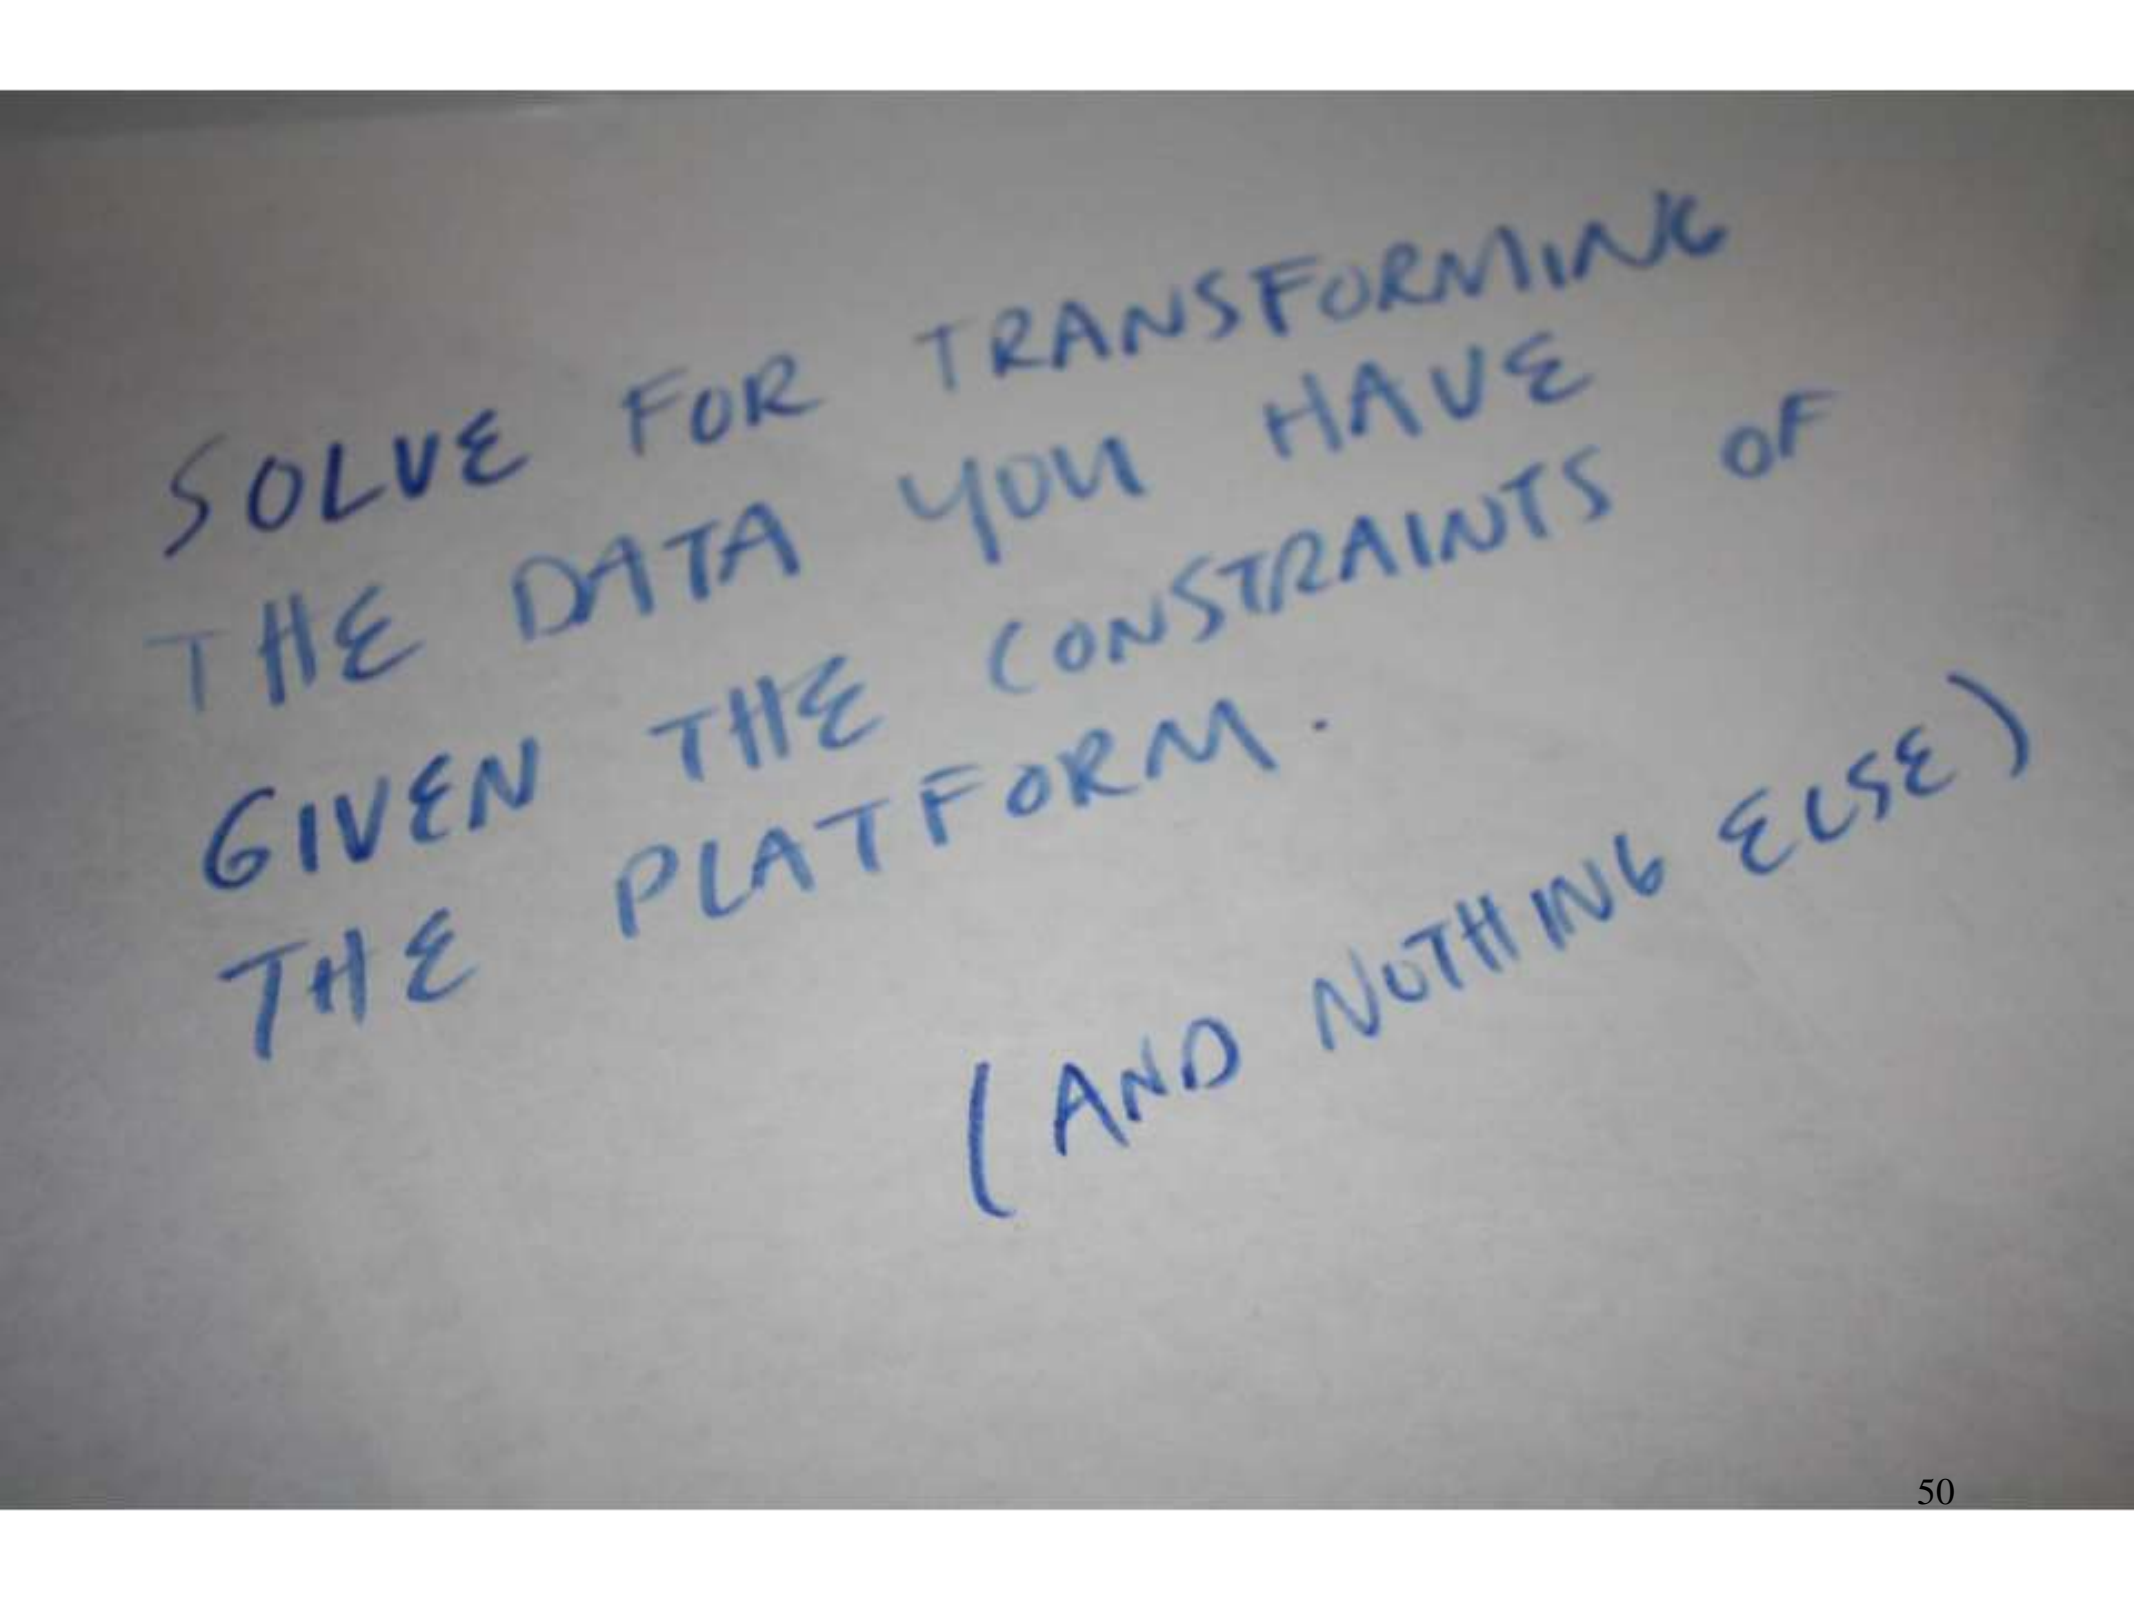 SOLVE FOR TRANSFORMING
THE DATA YOU HAVE
GIVEN THE CONSTRAINTS OF
THE PLATFORM.
(AND NOTHING ELSE)
50